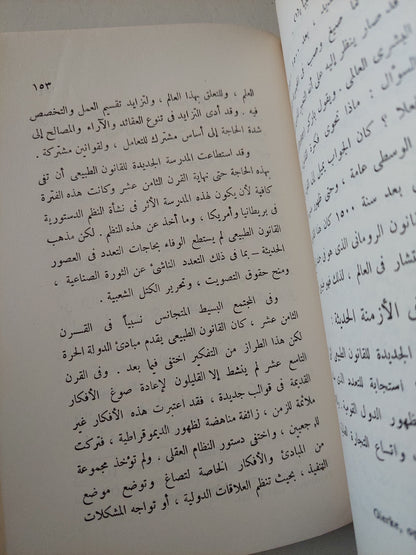 ١٥٣
العلم ، وللتعلق بهذا العالم ، ولتزايد تقسيم العمل والتخصص
فيه . وقد أدى التزايد فى تنوع العقائد والآراء والمصالح إلى
شدة الحاجة إلى أساس مشترك للتعامل ، ولقوانين مشتركة .
وقد استطاعت المدرسة الجديدة للقانون الطبيعى أن تفى
بهذه الحاجة حتى نهاية القرن الثامن عشر وكانت هذه الفترة
كافية لأن يكون لهذه المدرسة الأثر فى نشأة النظم الدستورية
فى بريطانيا وأمريكا ، وما أخذ عن هذه النظم . لكن مذهب
القانون الطبيعى لم يستطع الوفاء بحاجات التعدد فى العصور
الحديثة – بما فى ذلك التعدد الناشئ عن الثورة الصناعية ،
ومنح حقوق التصويت ، وتحرير الكتل الشعبية .
وفى المجتمع البسيط المتجانس نسبياً فى القرن
الثامن عشر ، كان القانون الطبيعى يقدم مبادئ الدولة الحرة
لكن هذا الطراز من التفكير اختفى فيما بعد . وفى القرن
التاسع عشر لم ينشط إلا القليلون لإعادة صوغ الأفكار
القديمة فى قوالب جديدة ، فقد اعتبرت هذه الأفكار غير
ملائمة للزمن ، زائفة مناهضة لظهور الديموقراطية ، فتركت
للرجعيين ، واختفى دستور النظام العقلى . ولم تؤخذ مجموعة
من المبادئ والأفكار الخاصة لتصاغ وتوضع موضع
التنفيذ ، بحيث تنظم العلاقات الدولية ، أو تواجه المشكلات
قد صار ينظر إليه على
البشرى العالمى . ويقول بارك
السؤال : ماذا نحوى فكرة
؟ كان الجواب
الوسطى عامة ، وحتى
بعد سنة ١٥٠٠ كان
القانون الرومانى الذى هو فى
انتشار فى العالم ، لذلك
الأزمنة الحديثة :
الجديدة للقانون الطبيعى
استجابة للتعدد الذى
ظهور الدول القومية ،
، واتساع التجارة
Gierke,